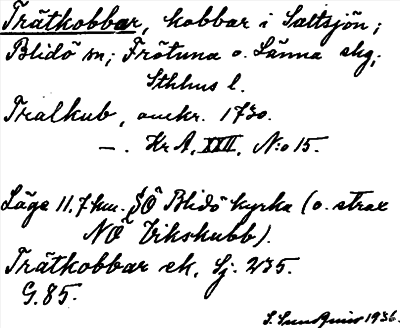 Trätkobbar, kobbar i Saltsjön;
Blidö sn; Frötuna o. Länna skg;
Sthlms l.
Tralkub, omkr. 1730.
— . Kr A, XXII, N:o 15.
Läge 11.7 km. SÖ Blidö kyrka (o. strax
NÖ Vikskubb).
Trätkobbar ek. Sj. 235.
G. 85.
1936.